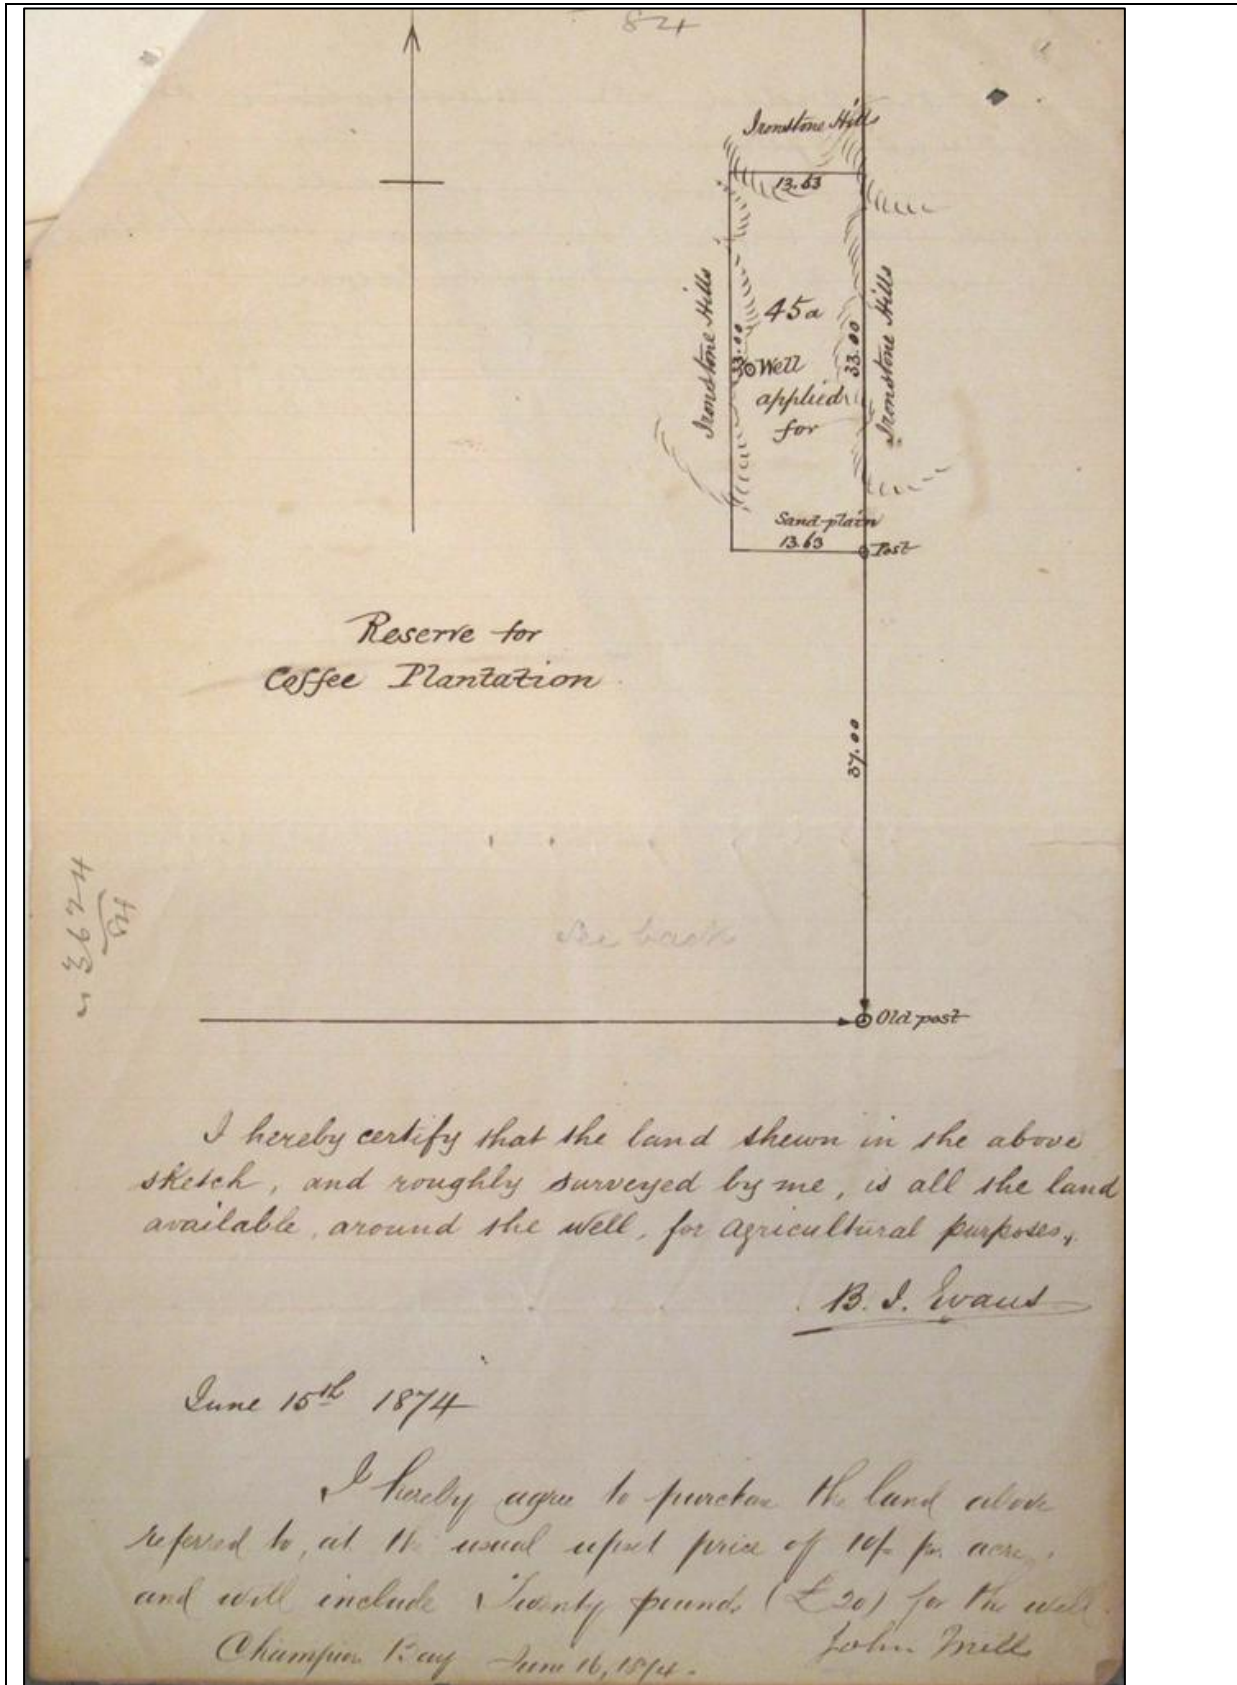 84
Ironstone Hills
13.63
Ironstone Hills
33.00
45a
Well
applied
for
33.00
Ironstone Hills
Sand-plain
13.63
Post
Reserve for
Coffee Plantation
37.00
3674
84
See back
Old post
I hereby certify that the land shewn in the above
sketch, and roughly surveyed by me, is all the land
available, around the well, for agricultural purposes.,
B. I. Evans
June 15th 1874
I hereby agree to purchase the land above
referred to, at the usual upset price of 10/- per acre,
and will include Twenty pounds (£20) for the well.
John Mills
Champion Bay June 16, 1874.